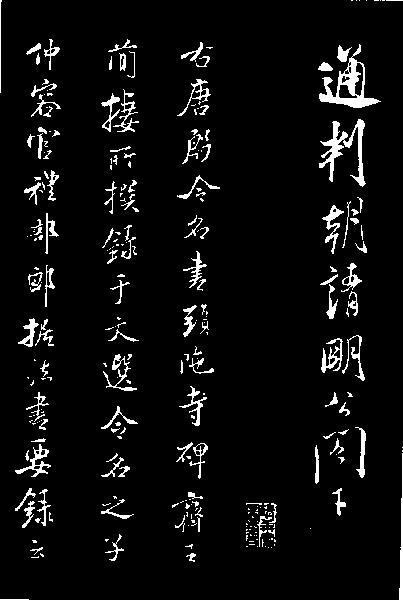 通判朝請明公閣下
右唐殷令名書頭陀寺碑齊王
簡棲所撰錄于文選令名之子
仲容官禮部郎據法書要錄云